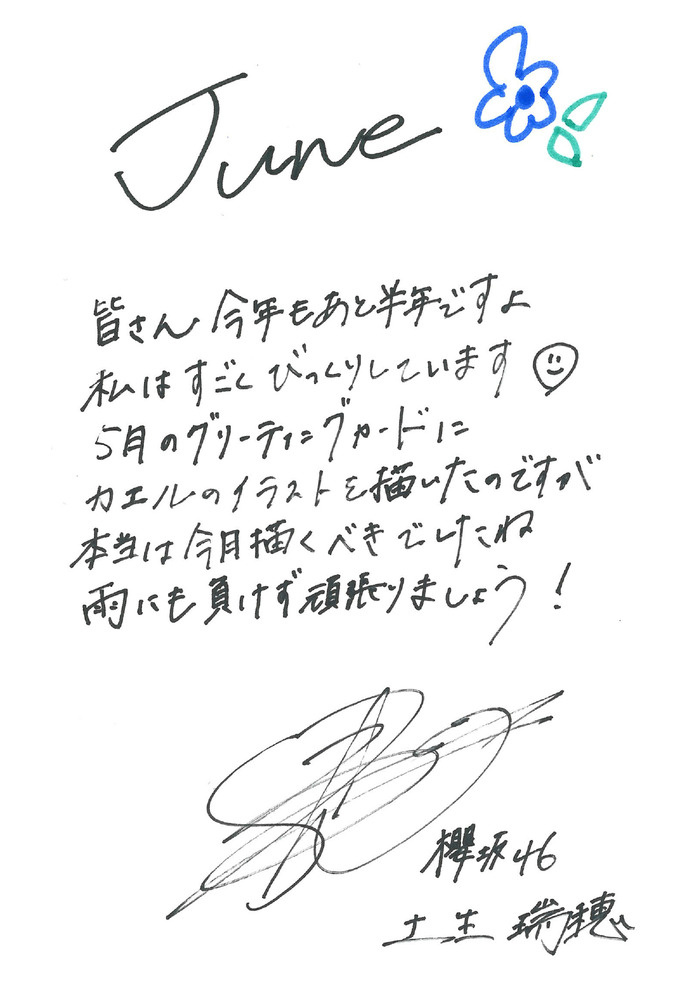 June
皆さん 今年もあと半年ですよ
私はすごくびっくりしています
5月のグリーティングカードに
カエルのイラストを描いたのですが
本当は今月描くべきでしたね
雨にも負けず頑張りましょう!
櫻坂46
土生瑞穂